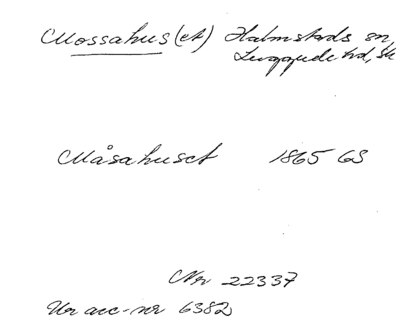 Mossahus(et) Halmstads sn,
Luggude hd, Sk
Måsahuset 1865 GS
Nr 22337
Ur acc-nr 6382